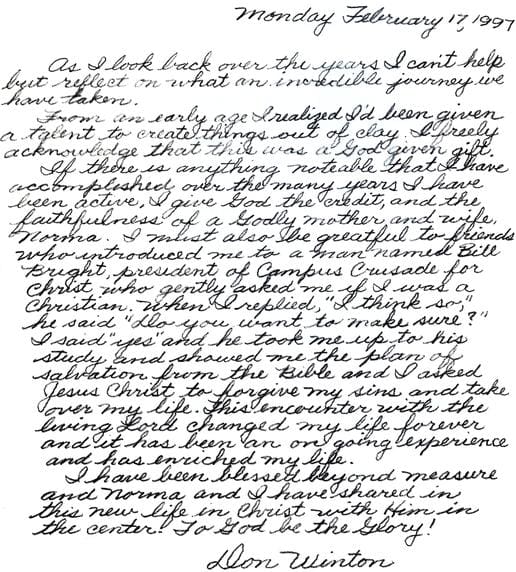 Monday February 17, 1997
As I look back over the years I can't help
but reflect on what an incredible journey we
have taken.
From an early age I realized I'd been given
a talent to create things out of clay. I freely
acknowledge that this was a God given gift.
If there is anything noteable that I have
accomplished over the many years I have
been active, I give God the credit, and the
faithfulness of a Godly mother and wife,
Norma. I must also be greatful to friends
who introduced me to a man named Bill
Bright, president of Campus Crusade for
Christ who gently asked me if I was a
Christian. When I replied, "I think so,"
he said "Do you want to make sure?"
I said "yes" and he took me up to his
study and showed me the plan of
salvation from the Bible and I asked
Jesus Christ to forgive my sins and take
over my life. This encounter with the
living Lord changed my life forever
and it has been an on going experience
and has enriched my life.
I have been blessed beyond measure
and Norma and I have shared in
this new life in Christ with Him in
the center! To God be the Glory!
Don Winton